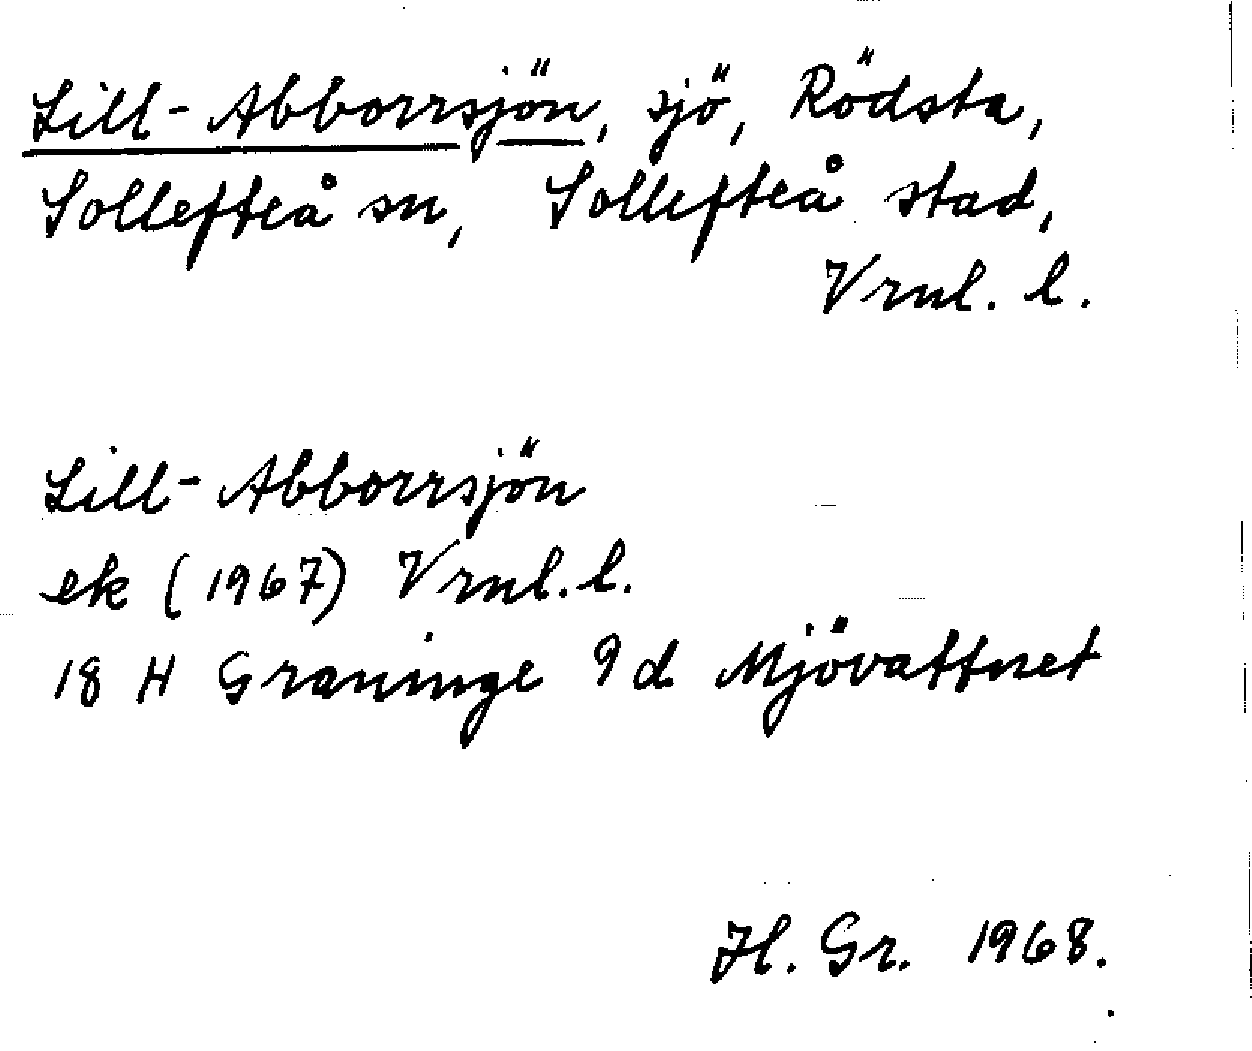 Lill-Abborrsjön, sjö, Rödsta,
Sollefteå sn, Sollefteå stad,
Vrnl. l.
Lill-Abborrsjön
ek (1967) Vrnl. l.
18 H Graninge 9 d Mjövattnet
H. Gr. 1968.